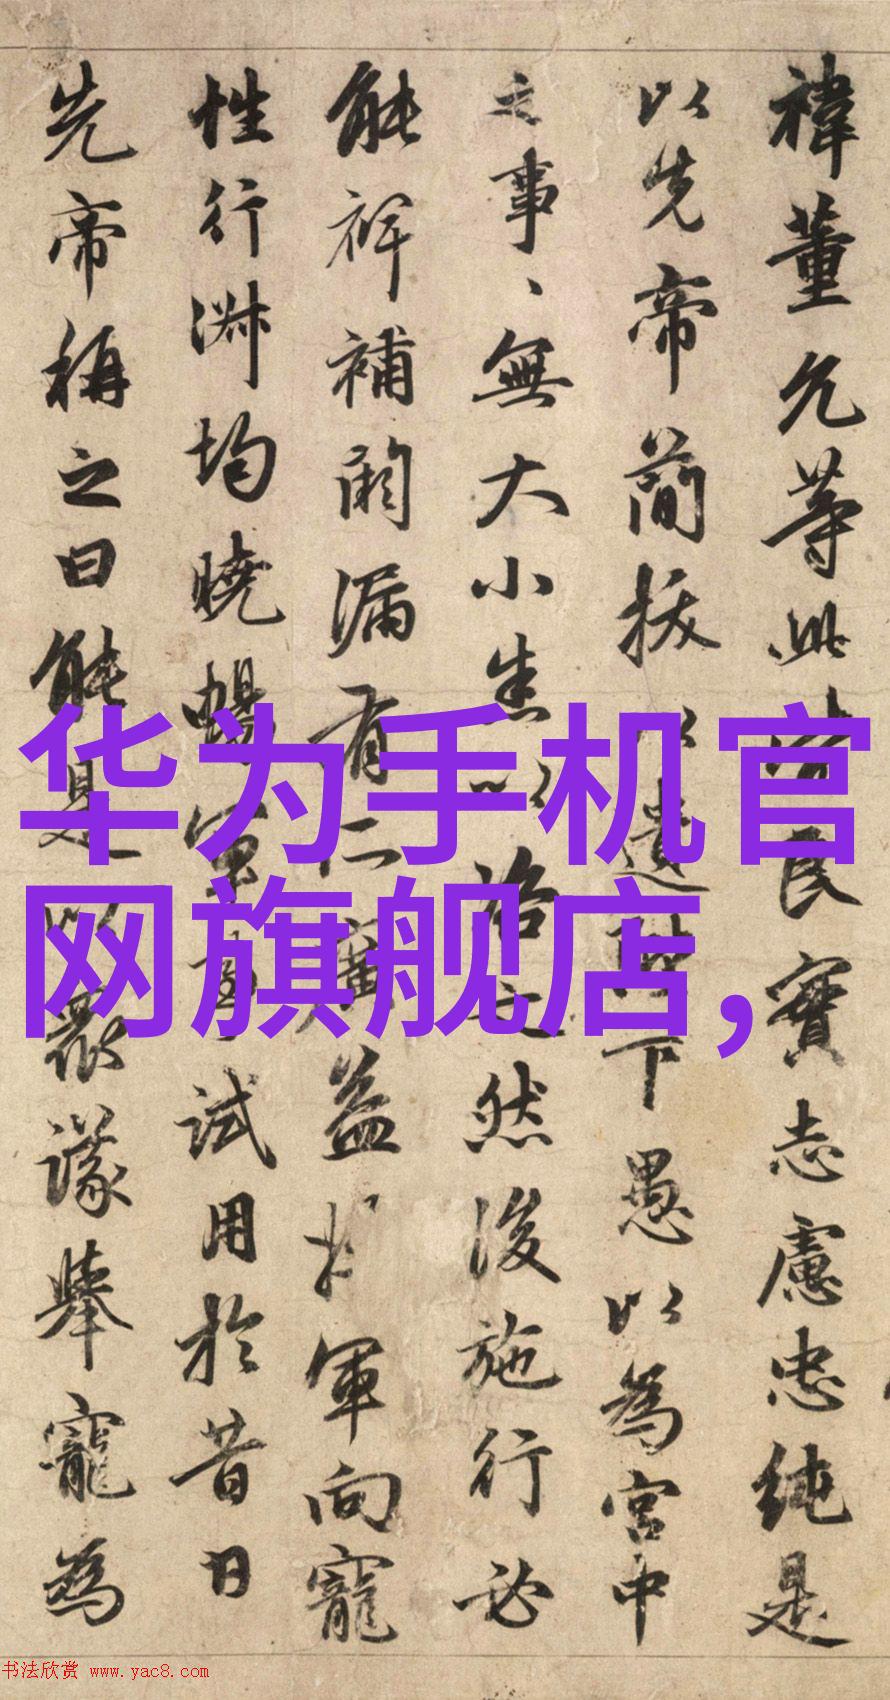 华为手机官
网旗舰店,
禕董允等此皆良實志慮忠純是
以先帝簡拔以遺陛下愚以為宮中
之事、無大小悉以諮之然後施行必
能裨補闕漏有所廣益將軍向寵
性行淑均曉暢軍事試用於昔日
先帝稱之曰能是以眾議舉寵為
书法欣赏 www.yac8.com